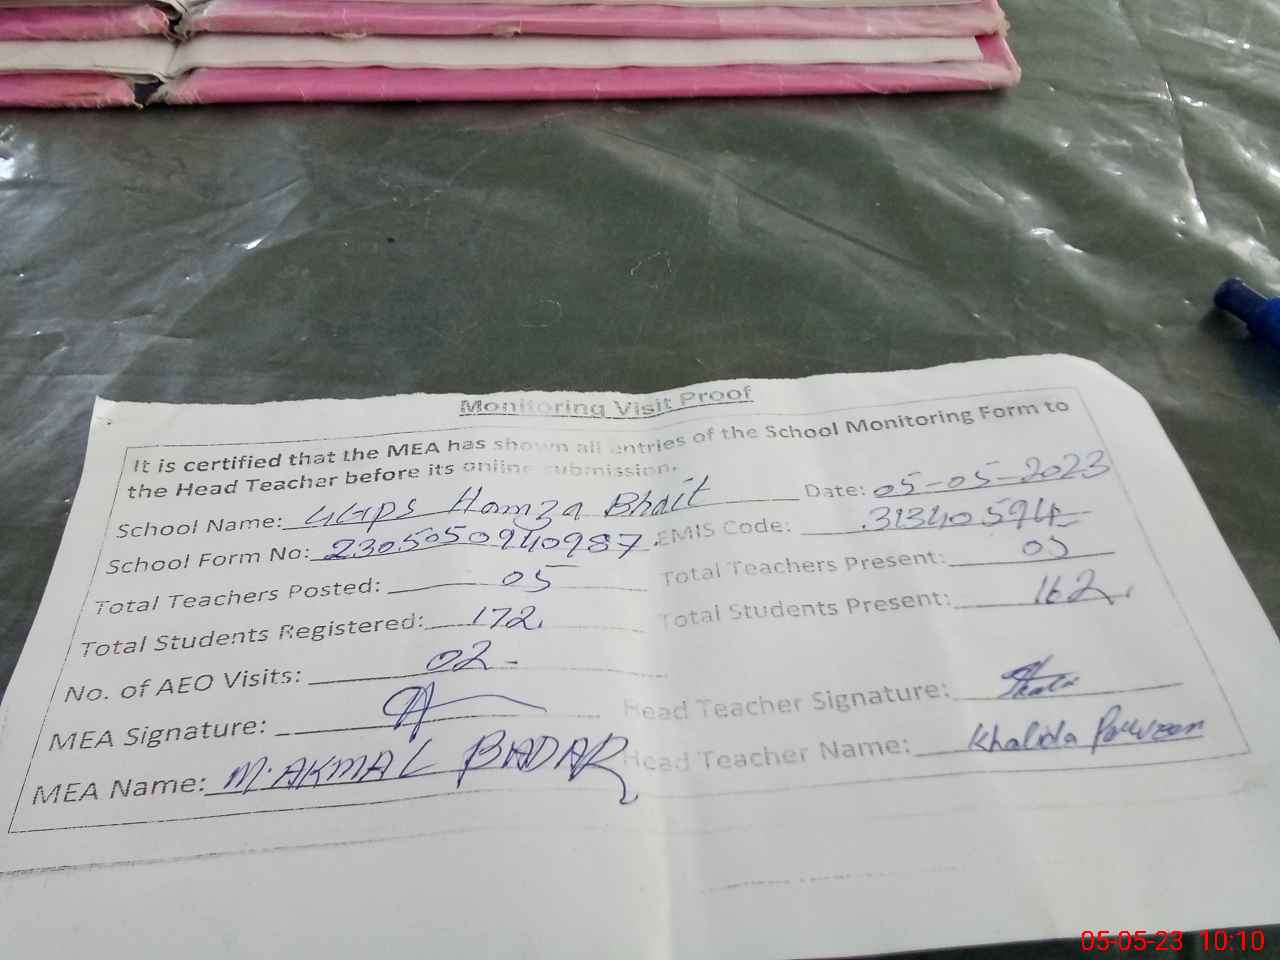 Monitoring Visit Proof
It is certified that the MEA has shown all entries of the School Monitoring Form to
the Head Teacher before its online submission.
School Name: GGPS Hamza Bhait Date: 05-05-2023
School Form No: 2305050940987 EMIS Code: 31340594
Total Teachers Posted: 05 Total Teachers Present: 05
Total Students Registered: 172 Total Students Present: 162
No. of AEO Visits: 02
MEA Signature: Head Teacher Signature:
MEA Name: M. AKMAL BADAR Head Teacher Name: Khalida Parveen
05-05-23 10:10